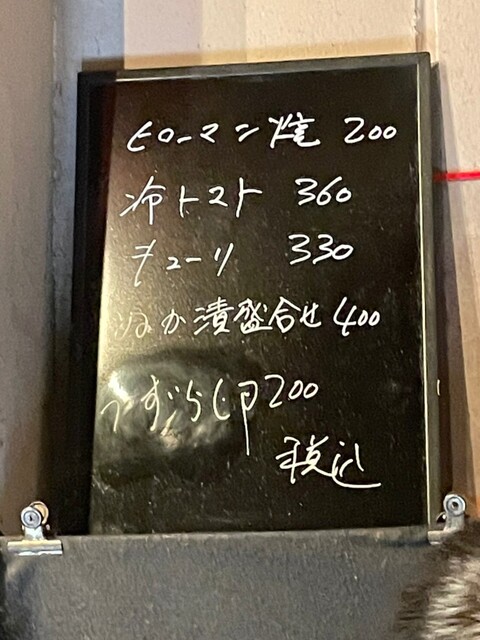 ピーマン焼 200
冷トマト 360
キューリ 330
ぬか漬盛合せ 400
うずら卵 200
税込